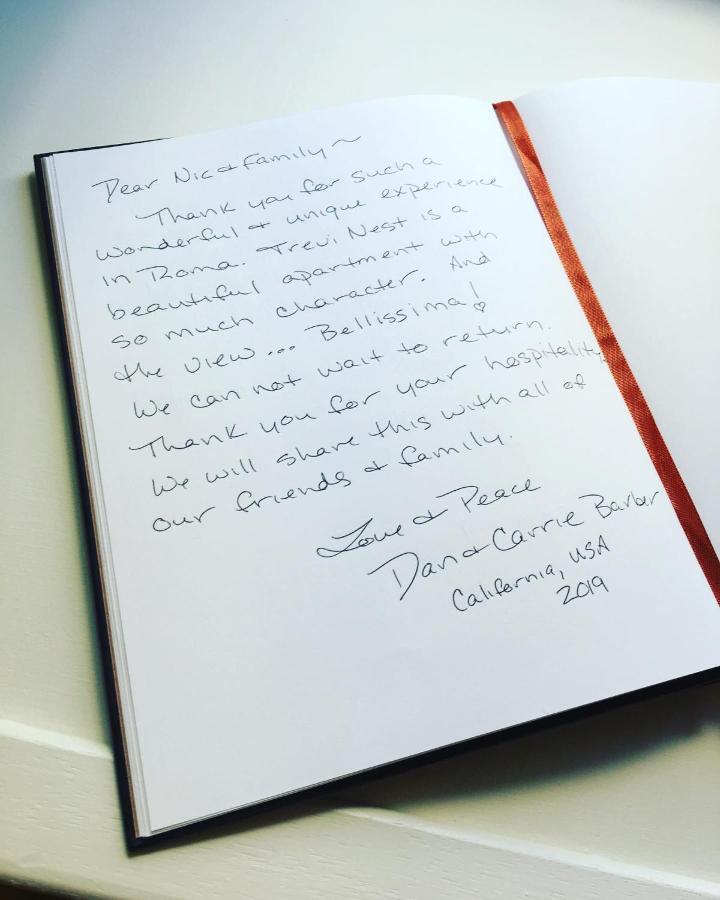 Dear Nic & Family ~
Thank you for such a
wonderful & unique experience
in Roma. Trevi Nest is a
beautiful apartment with
so much character. And
the view... Bellissima!
We can not wait to return.
Thank you for your hospitality.
We will share this with all of
our friends & family.
Love & Peace
Dan & Carrie Barber
California, USA
2019